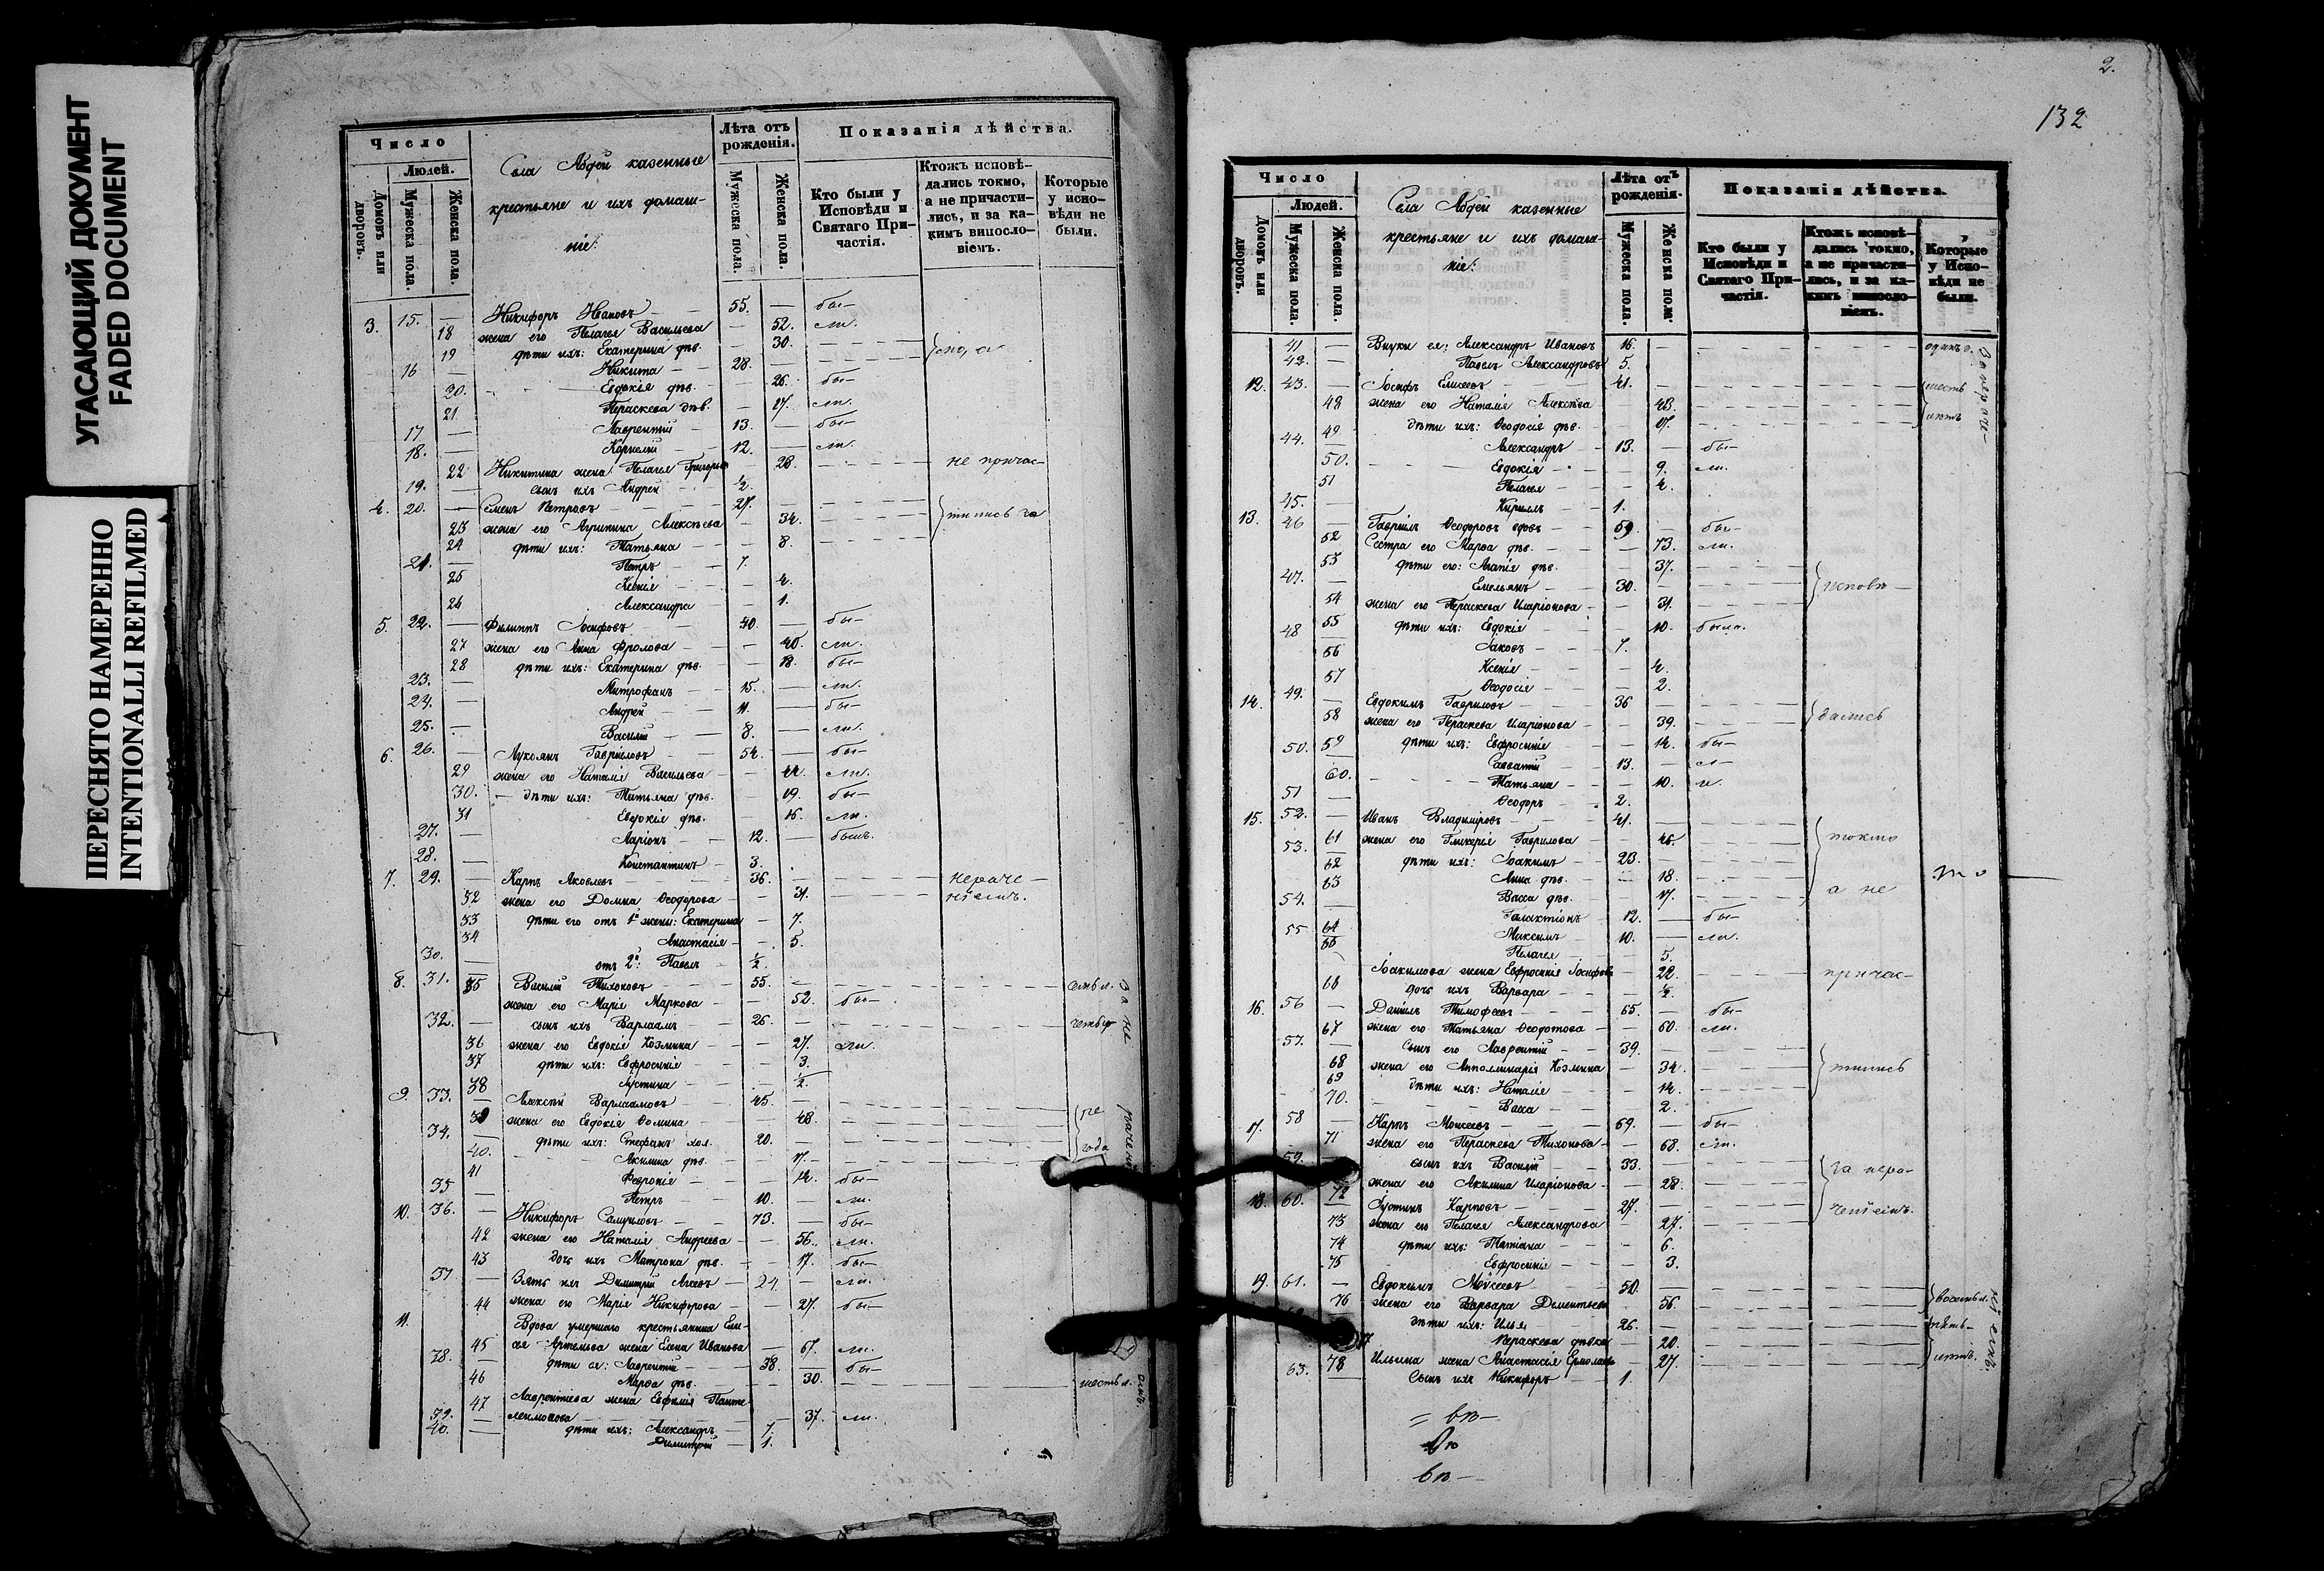 УГАСАЮЩИЙ ДОКУМЕНТ
FADED DOCUMENT
ПЕРЕСНЯТО НАМЕРЕННО
INTENTIONALLI REFILMED
Число
Людей.
Домовъ или дворовъ.
Мужеска пола.
Женска пола.
Села Абдей казенные
крестьяне и ихъ домаш-
ніе:
Лѣта отъ рожденія.
Мужеска пола.
Женска пола.
Показанія дѣйства.
Кто были у Исповѣди и Святаго При-частія.
Ктожъ исповѣ-дались токмо, а не причасти-лись, и за ка-кимъ виносло-віемъ.
Которые у испо-вѣди не были.
3. 15. — Никифоръ Ивановъ 55. — бы-
18 жена его Пелагея Васильева — 52. ли.
19 дѣти ихъ: Екатерина дѣв. — 30.
16 — Никита 28. —
20. Евдокія дѣв. — 26. бы-
21 Параскева дѣв. — 17. ли.
17 — Лаврентій 13. — бы-
18. — Корнилій 12. — ли.
22 Никитина жена Пелагея Григорьева 28. не причас-
19. — сынъ ихъ Андрей ½.
4. 20. — Семенъ Петровъ 27. —
23 жена его Агрипина Алексѣева — 34. тились за
24 дѣти ихъ: Татьяна — 8.
21. — Петръ 7.
25 Ксенія — 4.
26 Александра — 1.
5. 22. — Филиппъ Іосифовъ 40. — бы-
27 жена его Анна Фролова — 40. ли.
28 дѣти ихъ: Екатерина дѣв. — 18. бы-
23. — Митрофанъ 15. — ли.
24. — Андрей 11. — бы-
25. — Василій 8. — ли.
6. 26. — Лукоянъ Гавриловъ 54. — бы-
29 жена его Наталія Васильева — 44. ли.
30. дѣти ихъ: Татьяна дѣв. — 19. бы-
31 Евдокія дѣв. — 16. ли.
27. — Ларіонъ 12. — былъ.
28. — Константинъ 3.
7. 29. — Карпъ Яковлевъ 36. — нераче-
32 жена его Домна Ѳеодорова — 31. ніемъ.
33 дѣти его отъ 1й жены: Екатерина — 7.
34 Анастасія — 5.
30. — отъ 2й: Павелъ ½.
8. 31. — Василій Тихоновъ 55. —
35 жена его Марія Маркова — 52. бы-
32. — сынъ ихъ Варлаамъ 26. —
36 жена его Евдокія Козмина — 27. ли.
37 дѣти ихъ: Евфросинія — 3.
38 Іустина — ½.
9. 33. — Алексѣй Варлаамовъ 45. —
39 жена его Евдокія Ѳомина — 48. не
34. — дѣти ихъ: Стефанъ хол. 20. — года
40. Акилина дѣв. — 17.
41 Февронія — 14. бы-
35 — Петръ 10. — ли.
10. 36. — Никифоръ Самуиловъ 73. — бы-
42 жена его Наталія Андреева — 56. ли.
43 дочь ихъ Матрона дѣв. — 17. бы-
37 — Зять ихъ Димитрій 24. — ли.
44 жена его Марія Никифорова — 27. бы-
11. Вдова умершаго крестьянина Ели-
45 сея Артемьева жена Елена Иванова — 67. ли.
38. — дѣти ея: Лаврентій 38. — бы-
46 Марѳа дѣв. — 30. шесть л.
47 Лаврентіева жена Евфимія Панте-
леимонова — 37. ли.
39. — дѣти ихъ: Александръ 7.
40. — Димитрій 1.
2.
132
Число
Людей.
Домовъ или дворовъ.
Мужеска пола.
Женска пола.
Села Абдей казенные
крестьяне и ихъ домаш-
ніе:
Лѣта отъ рожденія.
Мужеска пола.
Женска пола.
Показанія дѣйства.
Кто были у Исповѣди и Святаго При-частія.
Ктожъ исповѣ-дались токмо, а не причасти-лись, и за ка-кимъ виносло-віемъ.
Которые у Испо-вѣди не были.
41 — Внуки ея: Александръ Ивановъ 16. —
42. — Павелъ Александровъ 5.
12. 43. — Іосифъ Елисеевъ 41. — шесть
48 жена его Наталія Алексѣева — 43. лѣтъ
49 дѣти ихъ: Ѳеодосія дѣв. — 17.
44. — Александръ 13. — бы-
50. Евдокія — 9. ли.
51 Пелагея — 4.
45. — Кириллъ 1.
13. 46 — Гавріилъ Ѳеодоровъ вдовъ 59. — бы-
52 Сестра его Марѳа дѣв. — 73. ли.
53 дѣти его: Агапія дѣв. — 37.
47. — Емельянъ 30. — исповѣ-
54 жена его Параскева Иларіонова — 31.
55 дѣти ихъ: Евдокія — 10. была.
48 — Іаковъ 7.
56 Ксенія — 4.
57 Ѳеодосія — 2.
14. 49. — Евдокимъ Гавриловъ 36 —
58 жена его Параскева Иларіонова — 39. дались
59 дѣти ихъ: Евфросинія — 14. бы-
50. — Савватій 13. — л-
60. Татьяна — 10. и.
51 — Ѳеодоръ 2.
15. 52. — Иванъ Владиміровъ 41. —
61 жена его Гликерія Гаврилова — 46. токмо
53. — дѣти ихъ: Іоакимъ 23. —
62 Анна дѣв. — 18.
63 Васса дѣв. — 17. а не
54. — Галактіонъ 12. — бы-
55 — Максимъ 10. — ли.
64 Пелагея — 5.
65 Іоакимова жена Евфросинія Іосифова — 22. причас-
66 дочь ихъ Варвара — ½.
16. 56 — Даніилъ Тимофеевъ 65. — бы-
67 жена его Татьяна Ѳеодотова — 60. ли.
57. — Сынъ его Лаврентій 39. —
68 жена его Апполлинарія Козмина — 34. тились
69 дѣти ихъ: Наталія — 14.
70. Васса — 2.
17. 58 — Карпъ Моисеевъ 69. — бы-
71 жена его Параскева Тихонова — 68. ли.
59. — сынъ ихъ Василій 33. — за нера-
72 жена его Акилина Иларіонова — 28.
18. 60. — Іустинъ Карповъ 27. — ченіемъ.
73 жена его Пелагея Александрова — 27.
74 дѣти ихъ: Татіана — 6.
75 Евфросинія — 3.
19. 61. — Евдокимъ Моѵсеевъ 50. —
76 жена его Варвара Дементьева — 56. восемь л.
дѣти ихъ: Илья 26. —
77 Параскева дѣвка — 20.
78 Ильина жена Анастасія Ермолаева — 27.
63. — Сынъ ихъ Никифоръ 1.